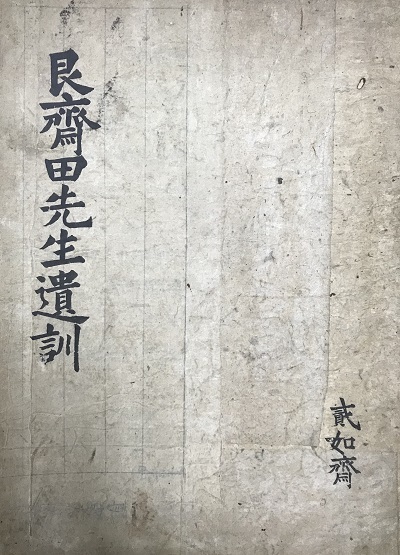 艮齋田先生遺訓
貳如齋